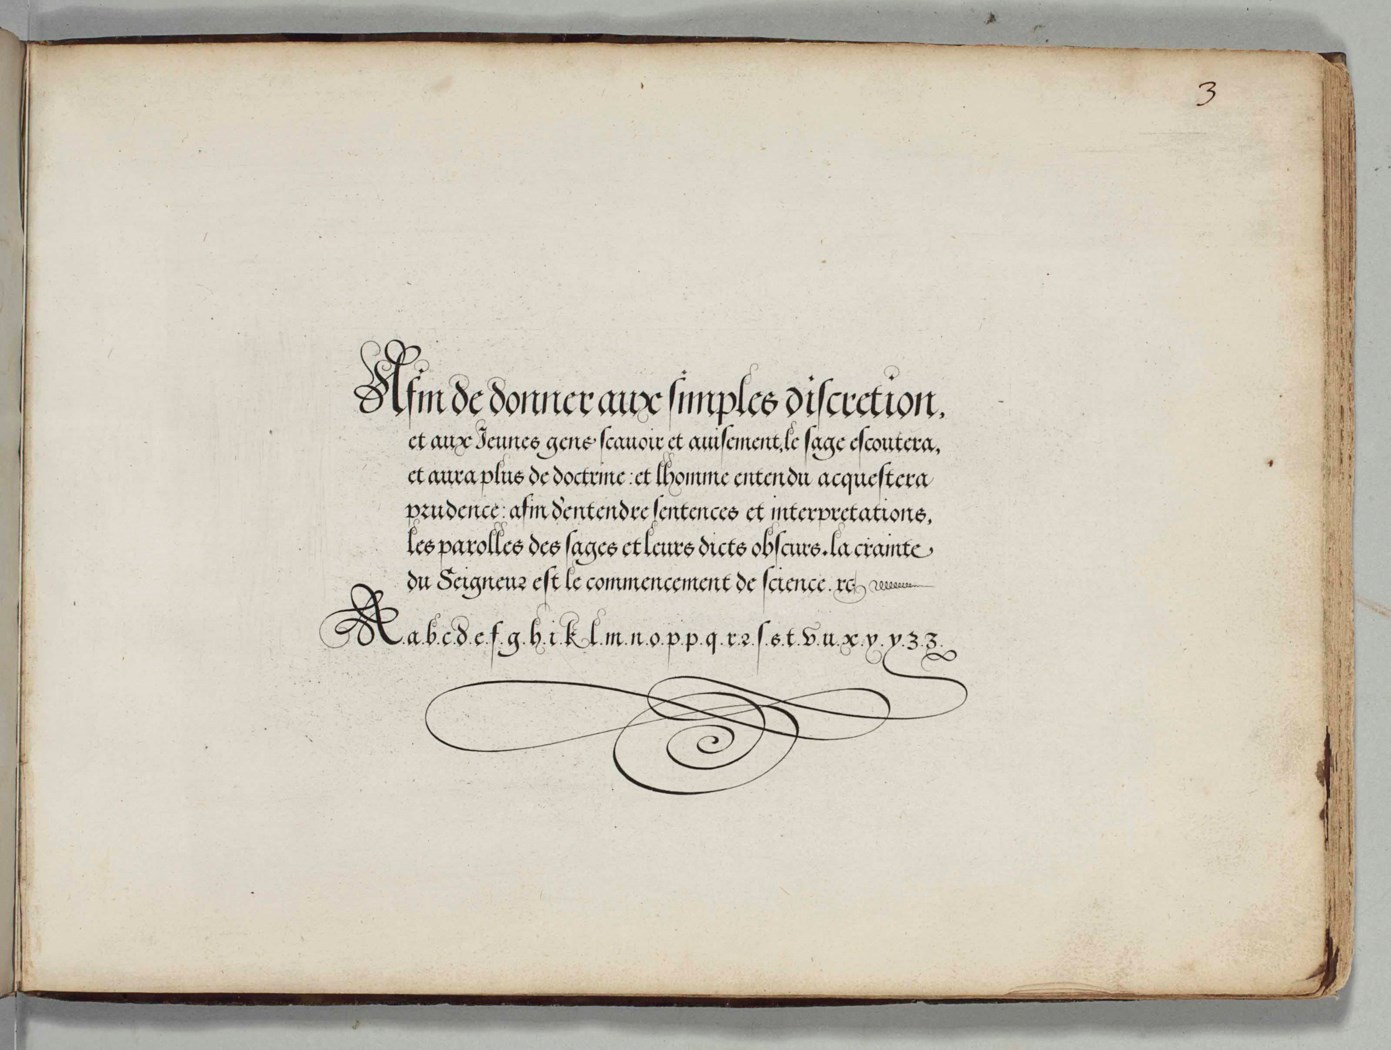 3
Afin de donner aux simples discretion,
et aux Jeunes gens scauoir et auisement, le sage escoutera,
et aura plus de doctrine : et lhomme entendu acquestera
prudence : afin d'entendre sentences et interpretations,
les parolles des sages et leurs dicts obscurs. la crainte
du Seigneur est le commencement de science. &c
A.a.b.c.d.e.f.g.h.i.k.l.m.n.o.p.p.q.r.r.s.s.t.v.u.x.y.y.z.z.